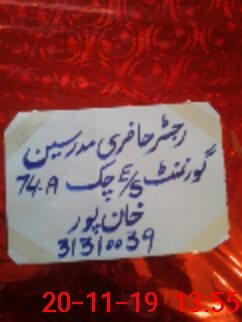 رجسٹر حاضری مدرسین
گورنمنٹ E/S چک 74.A
خان پور
31310039
20-11-19 13:55